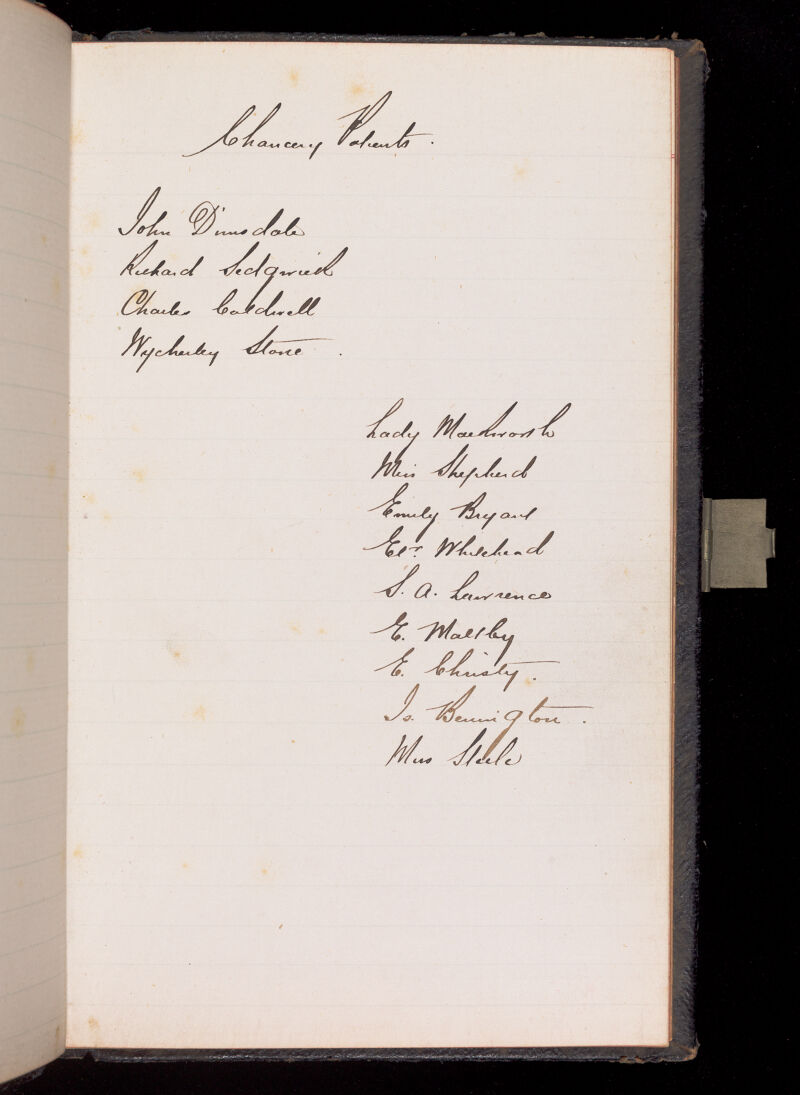 Chancery Patients.
John Dimsdale
Richard Sedgwick
Charles Caldwell
Wycherley Stone.
Lady Mackworth
Miss Shepherd
Emily Bryant
Elr. Whitehead
S. A. Lawrence
E. Maltby
E. Christy.
Is. Bennington.
Miss Steele